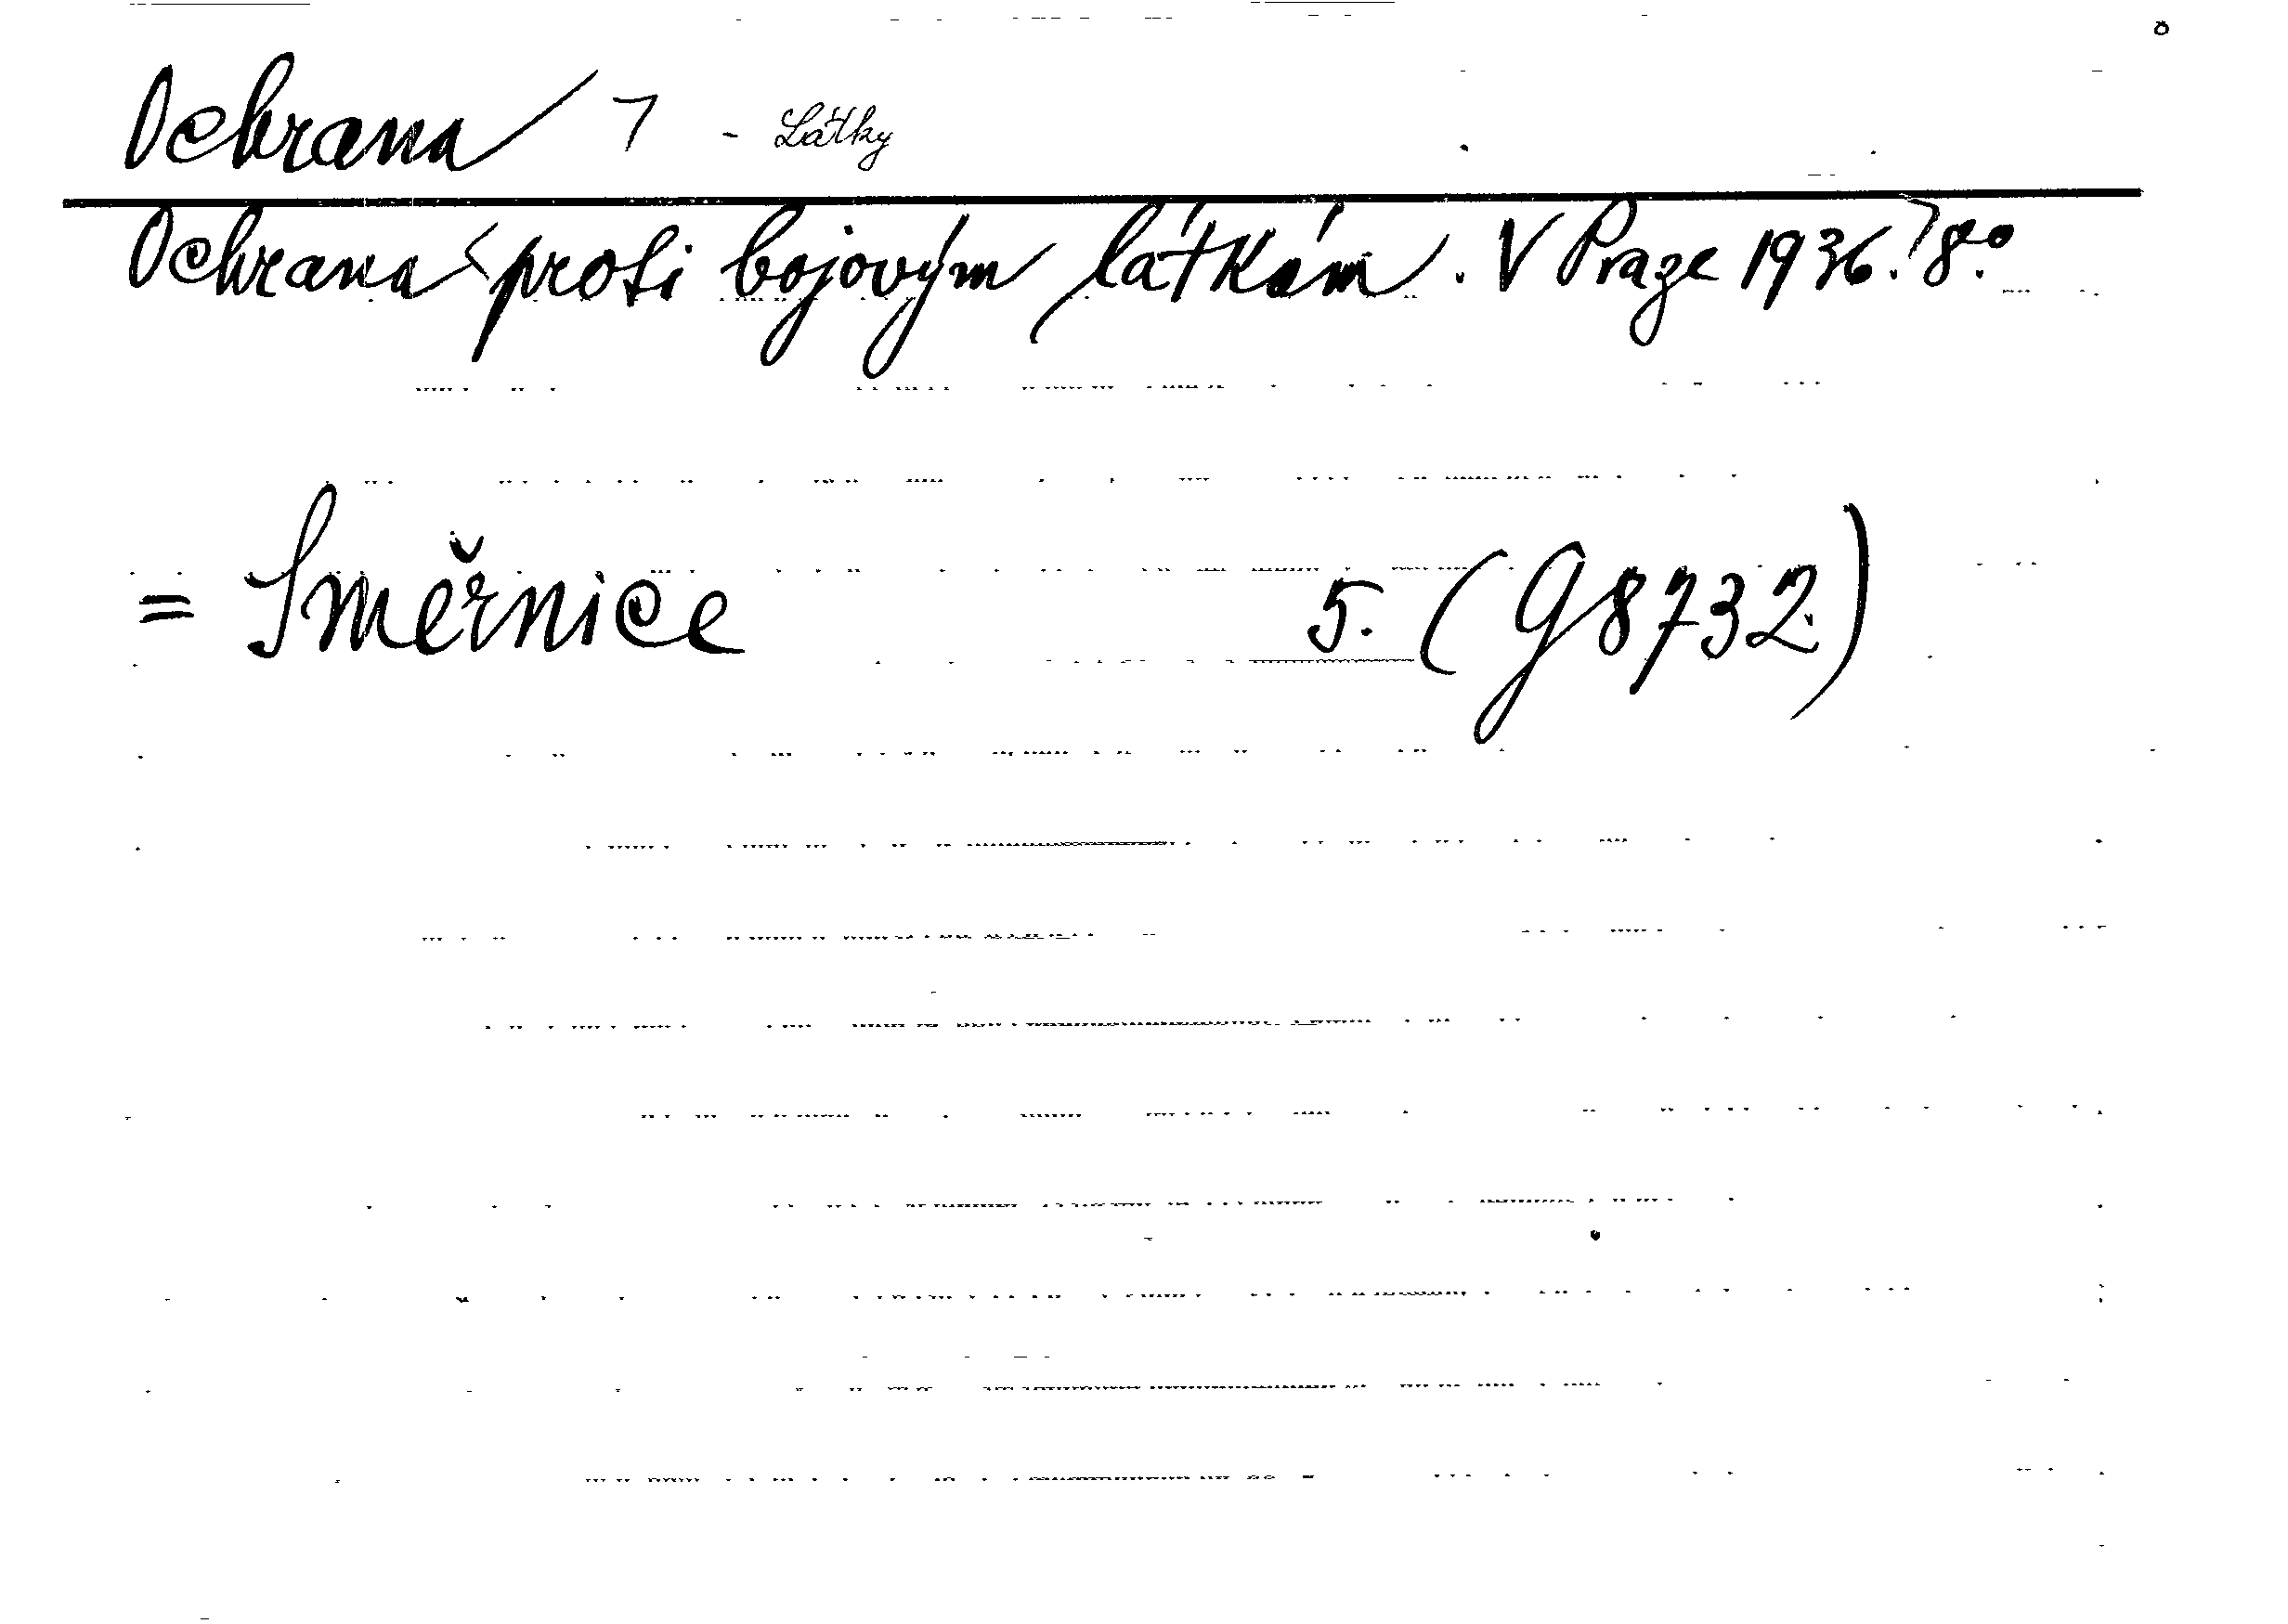 Ochrana 7 - Látky
Ochrana proti bojovým látkám. V Praze 1936. 8.°
= Směrnice 5. (G 8732)